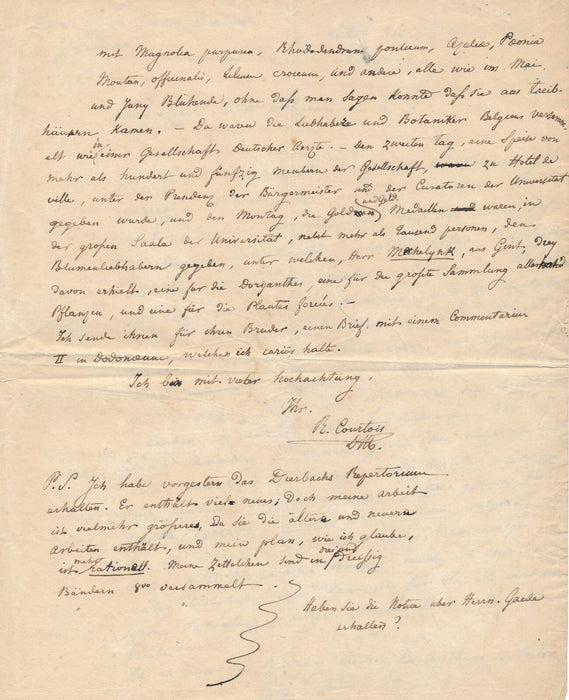 mit Magnolia purpurea, Rhododendrum ponticum, Azalea, Pæonia
Moutan, officinalis, Lilium croceum, und andere, alle wie im Mai
und Juny Blühende, ohne daß man sagen konnte daß sie aus Treib-
häusern kamen. – Da waren die Liebhabere und Botaniker Belgiens versamm
elt wie in einer Gesellschaft Deutscher Aerzte. – Den zweiten Tag, eine Speise von
mehr als hundert und fünfzig membern der Gesellschaft, zu Hotel de
ville, unter den Presidenz der Bürgermeister und der Curatoren der Universitat
gegeben wurde, und den Montag, die Gold und Geld. Medaillen waren in
der großen Saale der Universität, nebst mehr als Tausend personen, den
Blumenliebhabern gegeben, unter welchen, Herr Mechelynk, aus Gent, drey
davon erhielt, eine für die Doryanthes, eine für die große Sammlung allerhand
Pflanzen, und eine für die Plantes forcées. –
Ich sende ihnen für ihren Bruder, einen Brief, mit einem Commentarium
II in Dodonæum, welchen ich cariös halte.
Ich bin mit vieler hochachtung,
Ihr.
R. Courtois
P.S. Ich habe vorgestern das Dierbachs Repertorium
erhalten. Er enthält viele neues; Doch meine arbeit
ist vielmehr größeres, da sie die ältere und neuern
Arbeiten enthält, und mein plan, wie ich glaube,
ist mehr rationell. Meine Zettelchen sind in drei und Dreissig
Bändern 8vo versammelt.
Haben sie die Notice uber Herrn. Gaede
erhalten?